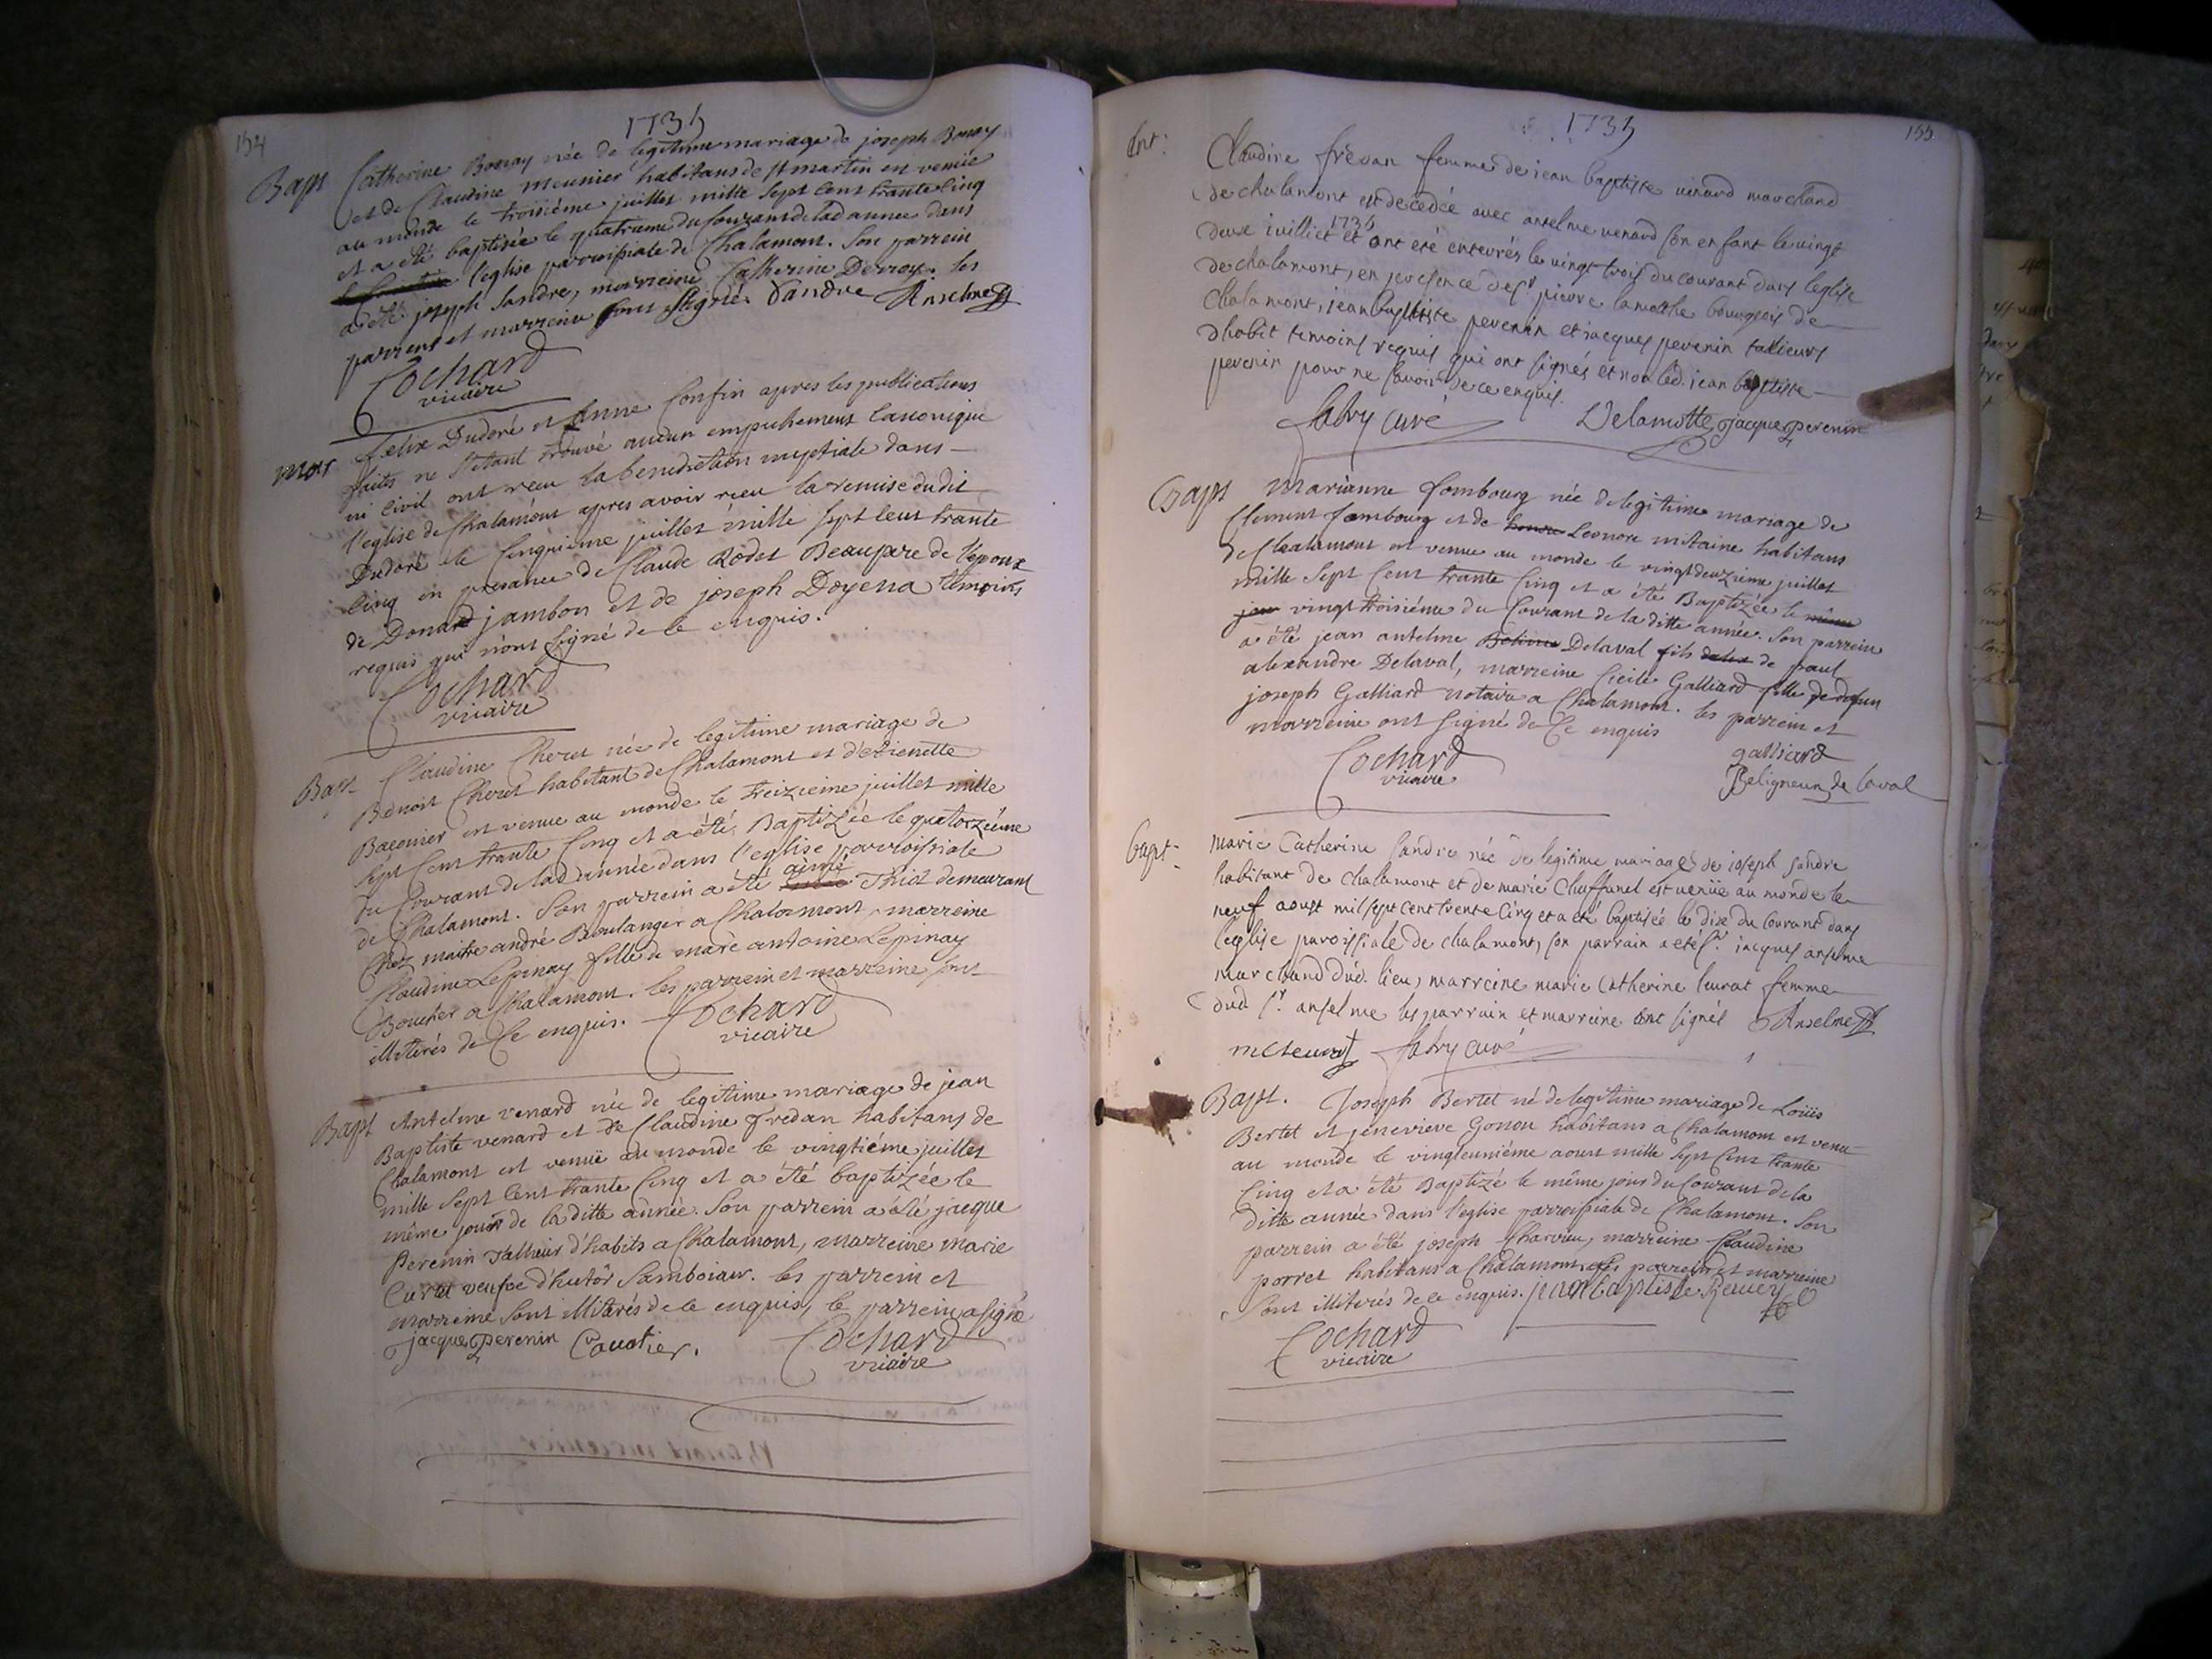 154
1735
Bapt Catherine Bonray née de legitime mariage de joseph Bonray
et de Claudine meunier habitans de st martin est venüe
au monde le troisiéme juillet mille sept cent trante cinq
et a été baptisée le quatrieme du courant de lad annee dans
l'eglise parroissiale de Chalamont. Son parrein
a été joseph Sandre, marreine Catherine Derroy. les
parrein et marreine sont signé. Sandre Anselme
Cochard
vicaire
mar felix Dudoré et Anne Confin apres les publications
faites ne s'etant trouvé aucun empechement Canonique
ni civil ont recu la benediction nuptiale dans
l'eglise de Chalamont apres avoir recu la remise dudit
Dudoré le cinquieme juillet mille sept cent trante
cinq en presence de Claude Rodet Beaupere de l'epoux
de Donard jambon et de joseph Doyena temoins
requis qui n'ont signé de ce enquis.
Cochard
vicaire
Bapt Claudine Cheret née de legitime mariage de
Benoit Cheret habitant de Chalamont et d'etienette
Baconier est venue au monde le treizieme juillet mille
sept cent trante cinq et a été Baptizée le quatorziéme
du Courant de lad année dans l'eglise parroissiale
de Chalamont. Son parrein a été aimé Thiot demeurant
chez maitre andré Boulanger a Chalamont, marreine
Claudine Lepinay fille de marc antoine Lepinay
Boucher a Chalamont. les parrein et marreine sont
illiterés de ce enquis. Cochard
vicaire
Bapt Antelme venard née de legitime mariage de jean
Baptiste venard et de Claudine fredan habitans de
Chalamont est venuë au monde le vingtiéme juillet
mille sept cent trante cinq et a été baptizée le
même jour de la ditte année. Son parrein a été jacque
Perenin Tallieur d'habits a Chalamont, marreine marie
Curt veufve d'hutôr Samboiaur. les parrein et
marreine sont illiterés de ce enquis, le parrein a signé
jacque perenin Cavotier. Cochard
vicaire
155
1735
Ent: Claudine frèdan femme de jean baptiste venard marchand
de chalamont est decedée avec antelme venard son enfant le vingt
deux juilliet 1735 et ont eté enterrés le vingt trois du courant dans leglise
de chalamont, en presence de sr pierre lamothe bourgeois de
chalamont, jean baptiste perenin et jacques perenin tallieurs
dhabit temoins requis qui ont signés et non led. jean baptiste
perenin pour ne scavoir de ce enquis.
fabry curé Delamotte jacque perenin
Bapt marianne fombourg née de legitime mariage de
Clement fombourg et de Leonore mitaine habitans
de Chalamont est venue au monde le vingtdeuzieme juillet
mille sept cent trante cinq et a été Baptizée le même
jour vingt troisiéme du Courant de la ditte année. Son parrein
a été jean antelme Delaval fils de paul
alexandre Delaval, marreine Cicile Galliard fille de defun
joseph Galliard notaire a Chalamont. les parrein et
marreine ont signé de ce enquis
Cochard galliard
vicaire Beligneux de laval
bapt. marie Catherine sandre née de legitime mariage de joseph sandre
habitant de chalamont et de marie Chaffanel est venüe au monde le
neuf aoust mil sept cent trente cinq et a eté baptisée le dix du courant dans
leglise paroissiale de chalamont, son parrain a eté sr. jacques anselme
marchand dud. lieu, marreine marie Catherine leurat femme
dud sr. anselme les parrain et marreine ont signés Anselme
mcleurat fabry curé
Bapt. Joseph Bertet né de legitime mariage de Loüis
Bertet et jenevieve Gonou habitans a Chalamont est venu
au monde le vingteuniéme aoust mille sept cent trante
cinq et a été Baptizé le même jour du Courant de la
ditte année dans l'eglise parroissiale de Chalamont. Son
parrein a été joseph Charvieu, marreine Claudine
porret habitans a Chalamont, les parrein et marreine
sont illiterés de ce enquis. jean baptiste Revery
Cochard
vicaire